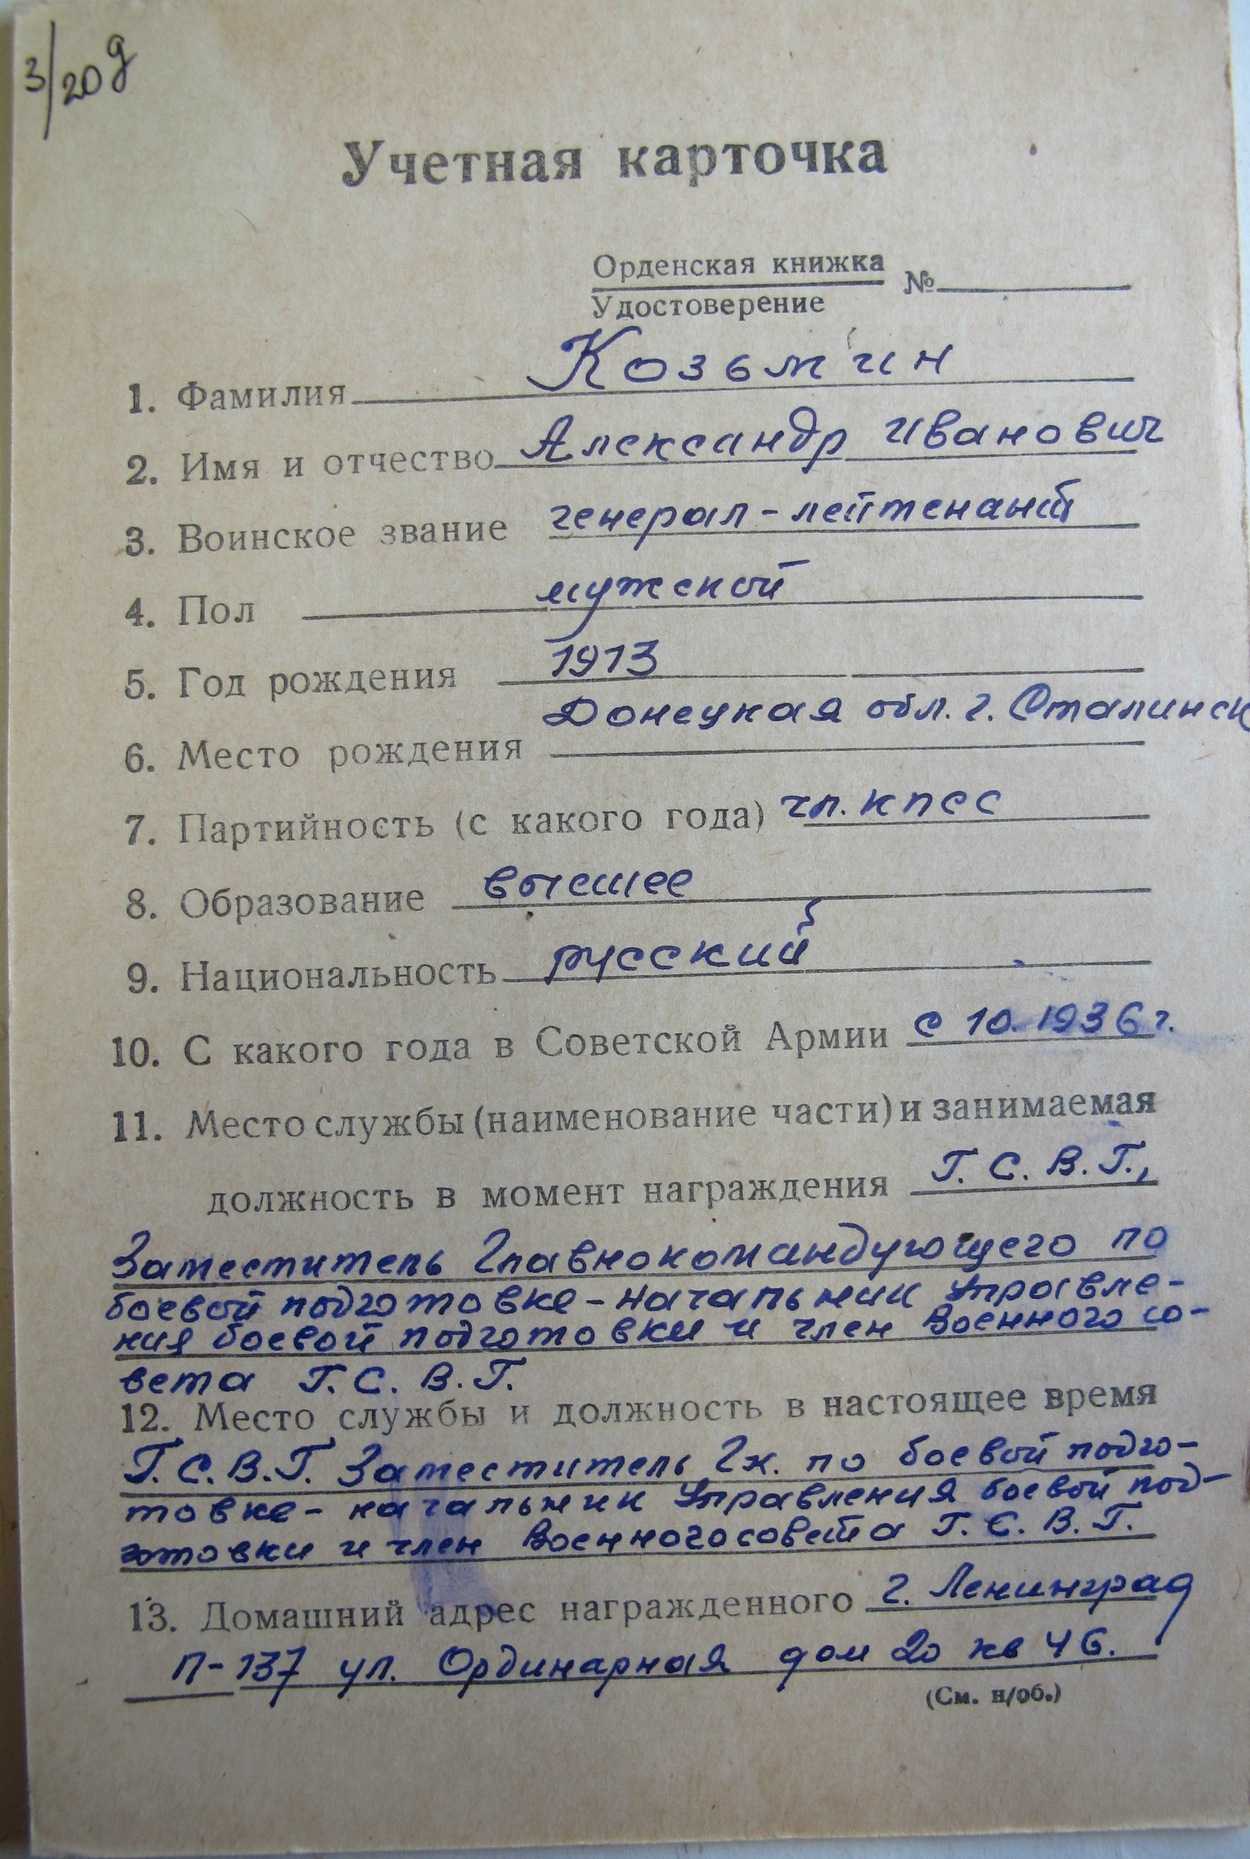 3/20 д
Учетная карточка
Орденская книжка №
Удостоверение
1. Фамилия Козьмин
2. Имя и отчество Александр Иванович
3. Воинское звание генерал-лейтенант
4. Пол мужской
5. Год рождения 1913
Донецкая обл. г. Сталинск
6. Место рождения
7. Партийность (с какого года) чл. КПСС
8. Образование высшее
9. Национальность русский
10. С какого года в Советской Армии с 10.1936 г.
11. Место службы (наименование части) и занимаемая
должность в момент награждения Г.С.В.Г.,
Заместитель Главнокомандующего по
боевой подготовке-начальник Управле-
ния боевой подготовки и член Военного со-
вета Г.С.В.Г.
12. Место службы и должность в настоящее время
Г.С.В.Г. Заместитель Гк. по боевой подго-
товке-начальник Управления боевой под-
готовки и член Военного совета Г.С.В.Г.
13. Домашний адрес награжденного г. Ленинград
П-137 ул. Ординарная дом 20 кв 46.
(См. н/об.)